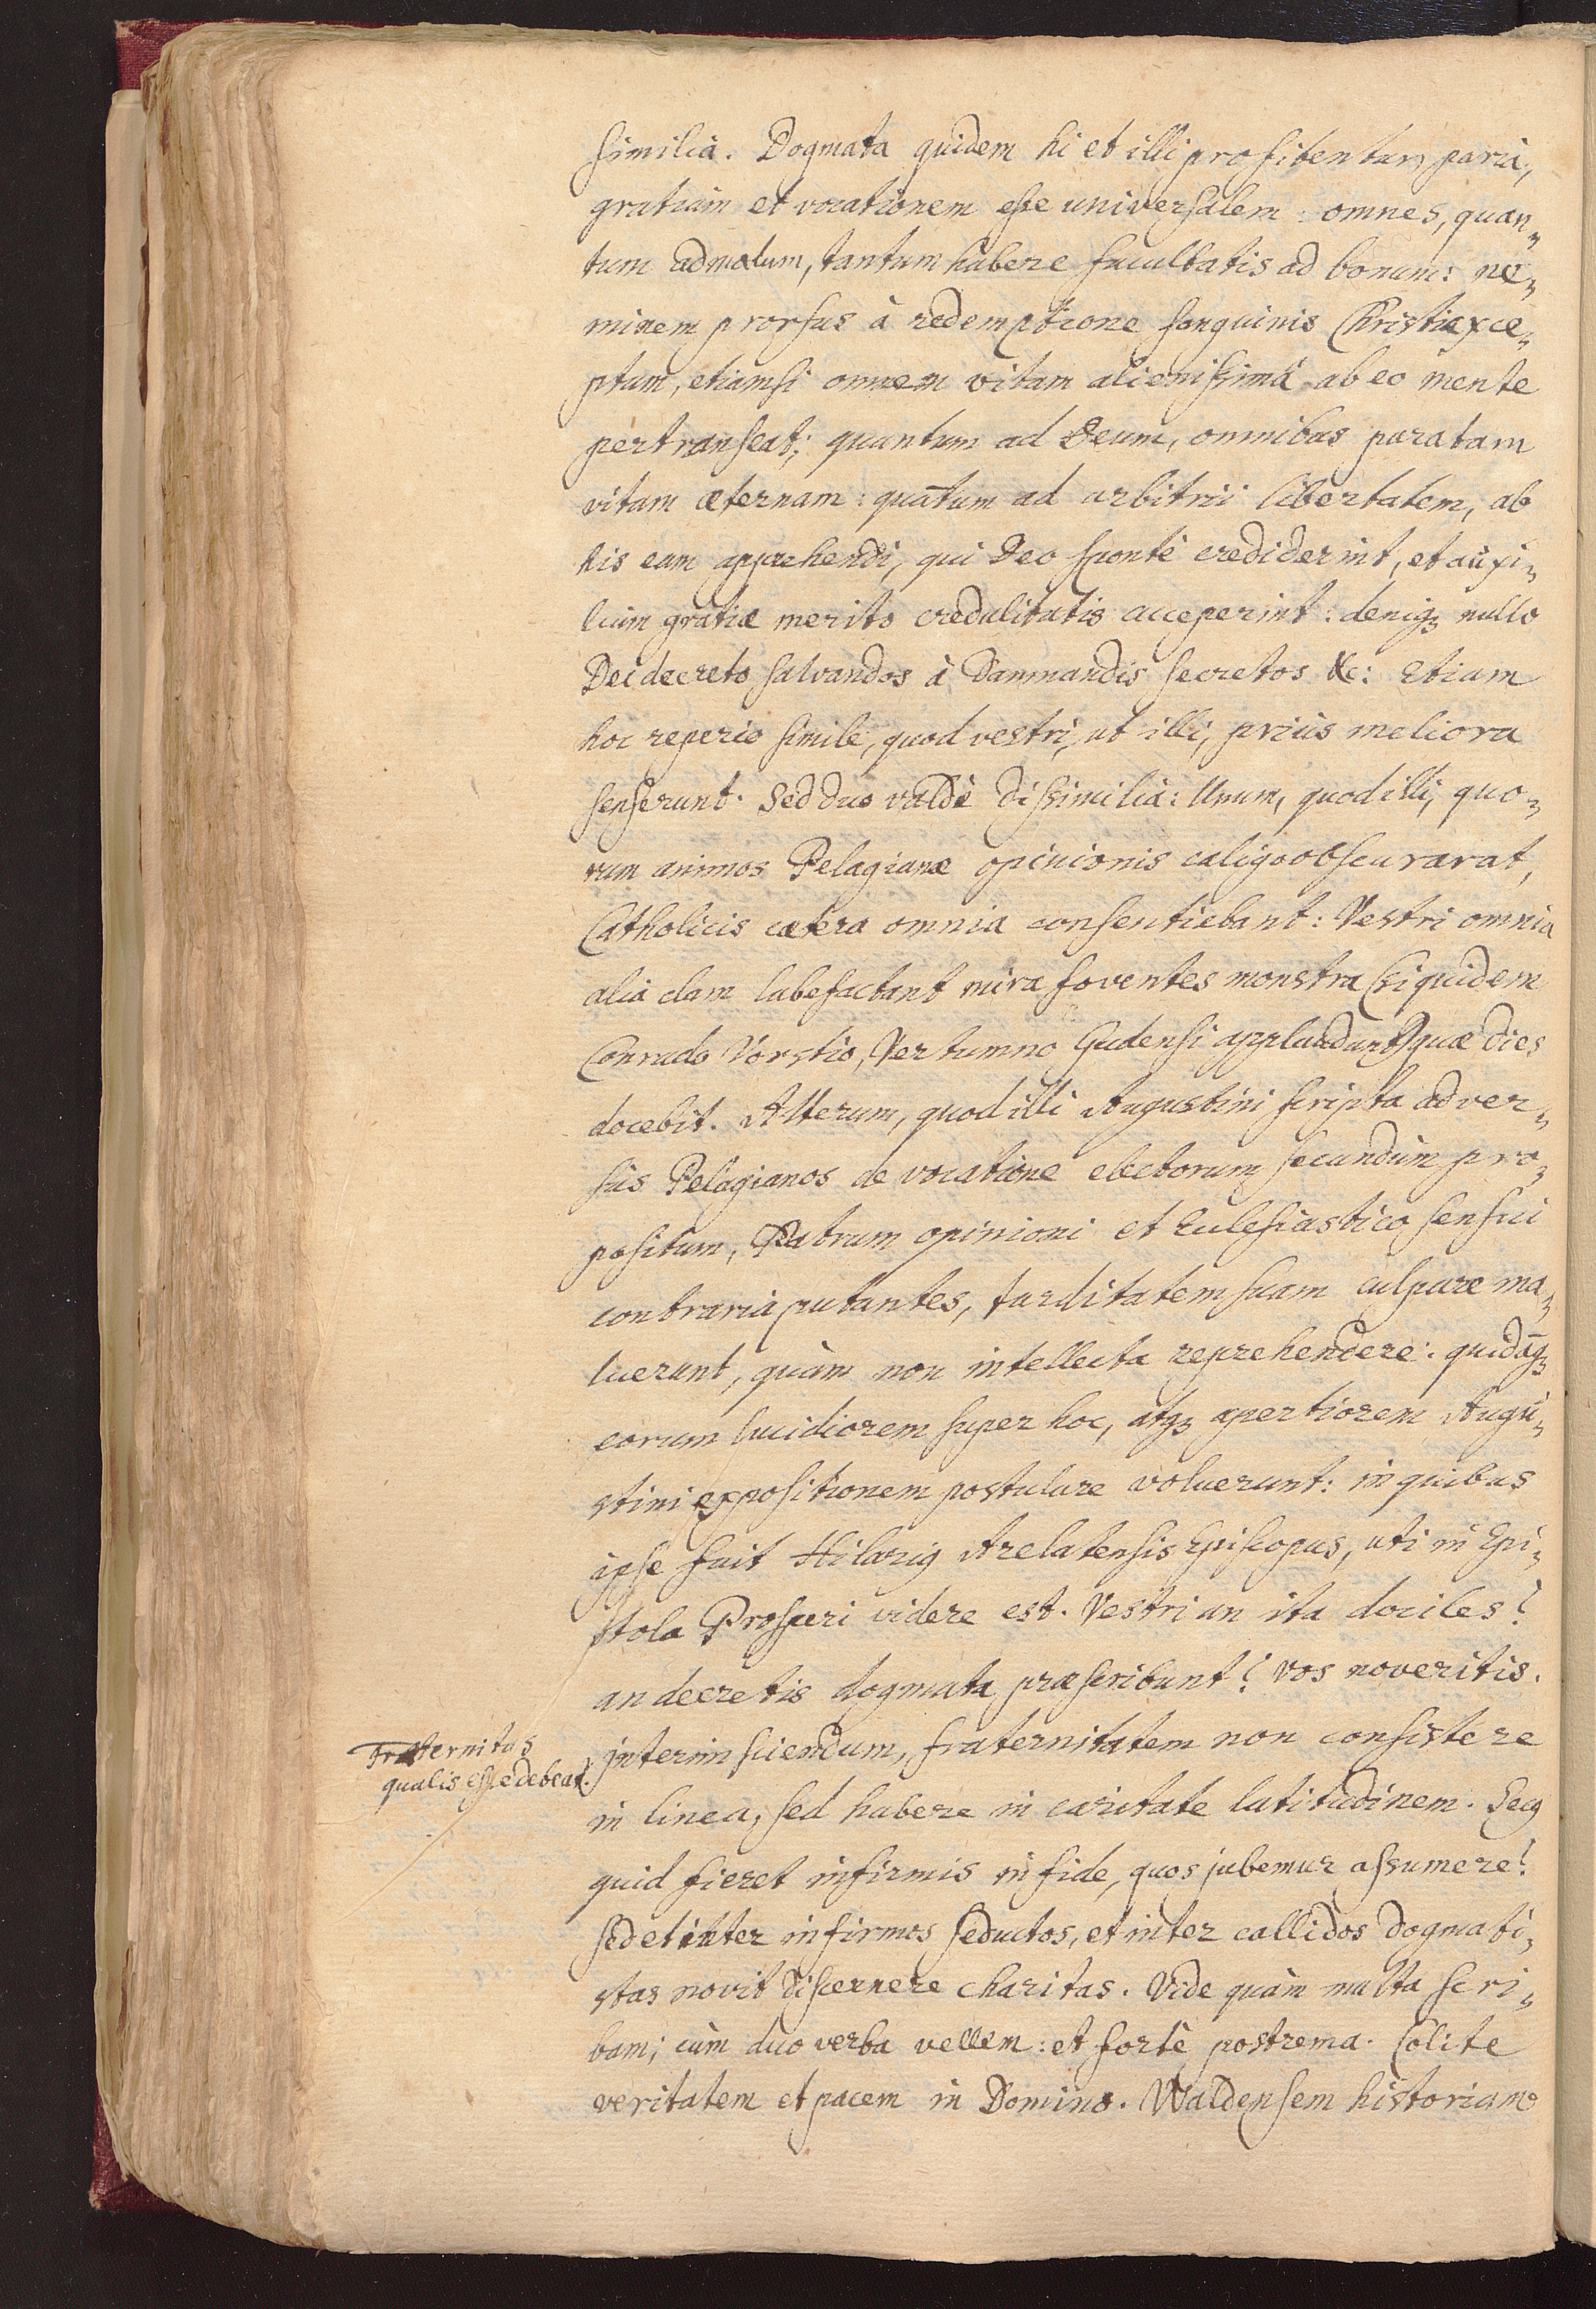 similia. Dogmata quidem hi et illi profitentur paria,
gratiam et vocationem esse universalem: omnes, quan-
tum ad malum, tantum habere facultatis ad bonum: ne-
minem prorsus à redemptione sanguinis Christi exce-
ptum, etiamsi omnem vitam alienissimâ ab eo mente
pertranseat; quantum ad Deum, omnibus paratam
vitam æternam: quātum ad arbitrii libertatem, ab
his eam apprehendi, qui Deo spontè crediderint, et auxi-
lium gratiæ merito credulitatis acceperint: deniqꝫ nullo
Dei decreto salvandos à Damnandis secretos &c: Etiam
hoc reperio simile, quod vestri, ut illi, priùs meliora
senserunt. Sed duo valdè dissimilia: Unum, quod illi, quo-
rum animos Pelagianæ opinionis caligo obscurarat,
Catholicis cætera omnia consentiebant: Vestri omnia
alia clam labefactant mira foventes monstra (siquidem
Conrado Vorstio, Vertumno Gudensi applaudunt) quæ dies
docebit. Alterum, quod illi Augustini scripta adver-
sus Pelagianos de vocatione electorum secundùm pro-
positum, Patrum opinioni et Ecclesiastico sensui
contraria putantes, tarditatem suam culpare ma-
luerunt, quàm non intellecta reprehendere: quidāqꝫ
eorum lucidiorem super hoc, atqꝫ apertiorem Augu-
stini expositionem postulare voluerunt: in quibus
ipse fuit Hilariꝰ Arelatensis Episcopus, uti in Epi-
stola Prosperi videre est. Vestri an ita dociles?
an decretis dogmata præscribunt? vos noveritis.
Fraternitas
qualis esse debeat.
interim sciendum, fraternitatem non consistere
in linea, sed habere in caritate latitudinem. Secꝰ
quid fieret infirmis in fide, quos jubemur assumere?
sed et inter infirmos seductos, et inter callidos dogmati-
stas novit discernere charitas. Vide quàm multa scri-
bam; cùm duo verba vellem: et fortè postrema. Colite
veritatem et pacem in Domino. Waldensem historiam